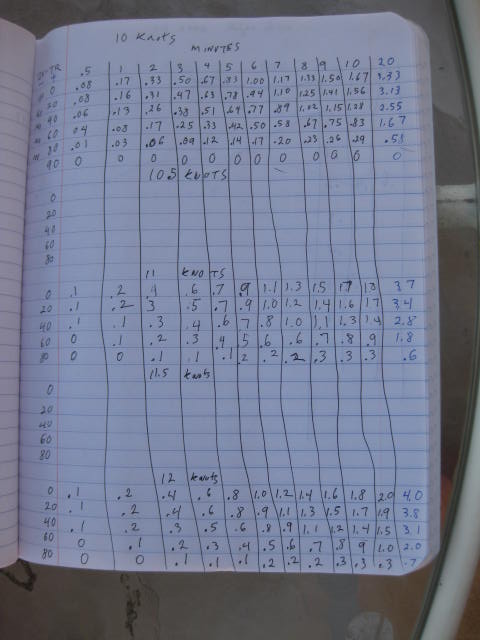 10 Knots
MINUTES
.5 1 2 3 4 5 6 7 8 9 10 20
0 .08 .17 .33 .50 .67 .83 1.00 1.17 1.33 1.50 1.67 3.33
20 .08 .16 .31 .47 .63 .78 .94 1.10 1.25 1.41 1.56 3.13
40 .06 .13 .26 .38 .51 .64 .77 .89 1.02 1.15 1.28 2.55
60 .04 .08 .17 .25 .33 .42 .50 .58 .67 .75 .83 1.67
80 .01 .03 .06 .09 .12 .14 .17 .20 .23 .26 .29 .58
90 0 0 0 0 0 0 0 0 0 0 0 0
10.5 KNOTS
0
20
40
60
80
11 KNOTS
0 .1 .2 .4 .6 .7 .9 1.1 1.3 1.5 1.7 1.8 3.7
20 .1 .2 3 .5 .7 .9 1.0 1.2 1.4 1.6 1.7 3.4
40 .1 .1 .3 .4 .6 7 .8 1.0 1.1 1.3 1.4 2.8
60 0 .1 .2 .3 .4 .5 .6 .6 .7 .8 .9 1.8
80 0 0 .1 .1 .1 .2 .2 .2 .3 .3 .3 .6
11.5 Knots
0
20
40
60
80
12 Knots
0 .1 .2 .4 .6 .8 1.0 1.2 1.4 1.6 1.8 2.0 4.0
20 .1 .2 .4 .6 .8 .9 1.1 1.3 1.5 1.7 1.9 3.8
40 .1 .2 .3 .5 .6 .8 .9 1.1 1.2 1.4 1.5 3.1
60 0 .1 .2 .3 .4 .5 .6 .7 .8 .9 1.0 2.0
80 0 0 .1 .1 .1 .2 .2 .2 .3 .3 .3 .7